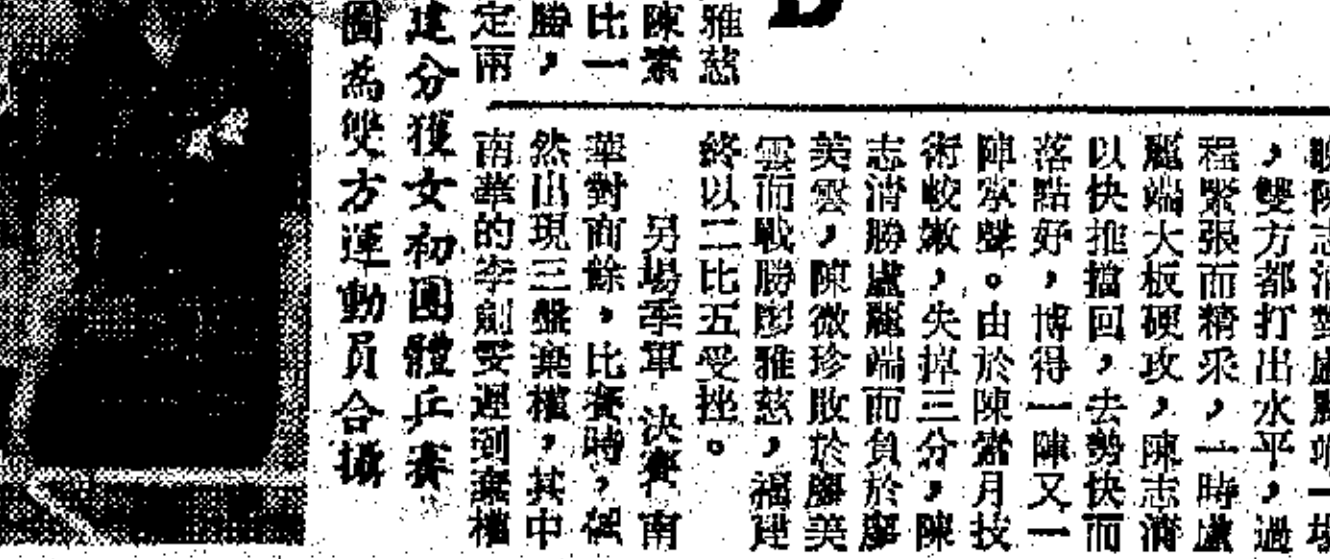 晚陳志清對盧麗端一場
，雙方都打出水平，過
程緊張而精采，一時盧
麗端大板硬攻，陳志清
以快推擋回，去勢快而
落點好，博得一陣又一
陣掌聲。由於陳素月技
術較嫩，失掉三分，陳
志清勝盧麗端而負於廖
美雲，陳微珍敗於廖美
雲而戰勝廖雅慈，福建
終以二比五受挫。
另場季軍決賽南
華對商餘，比賽時，
然出現三盤棄權，其中
南華的李劍雯遲到棄權
雅慈
陳素
比一
勝，
定兩
建分獲女初團體乒賽
圖為雙方運動員合攝